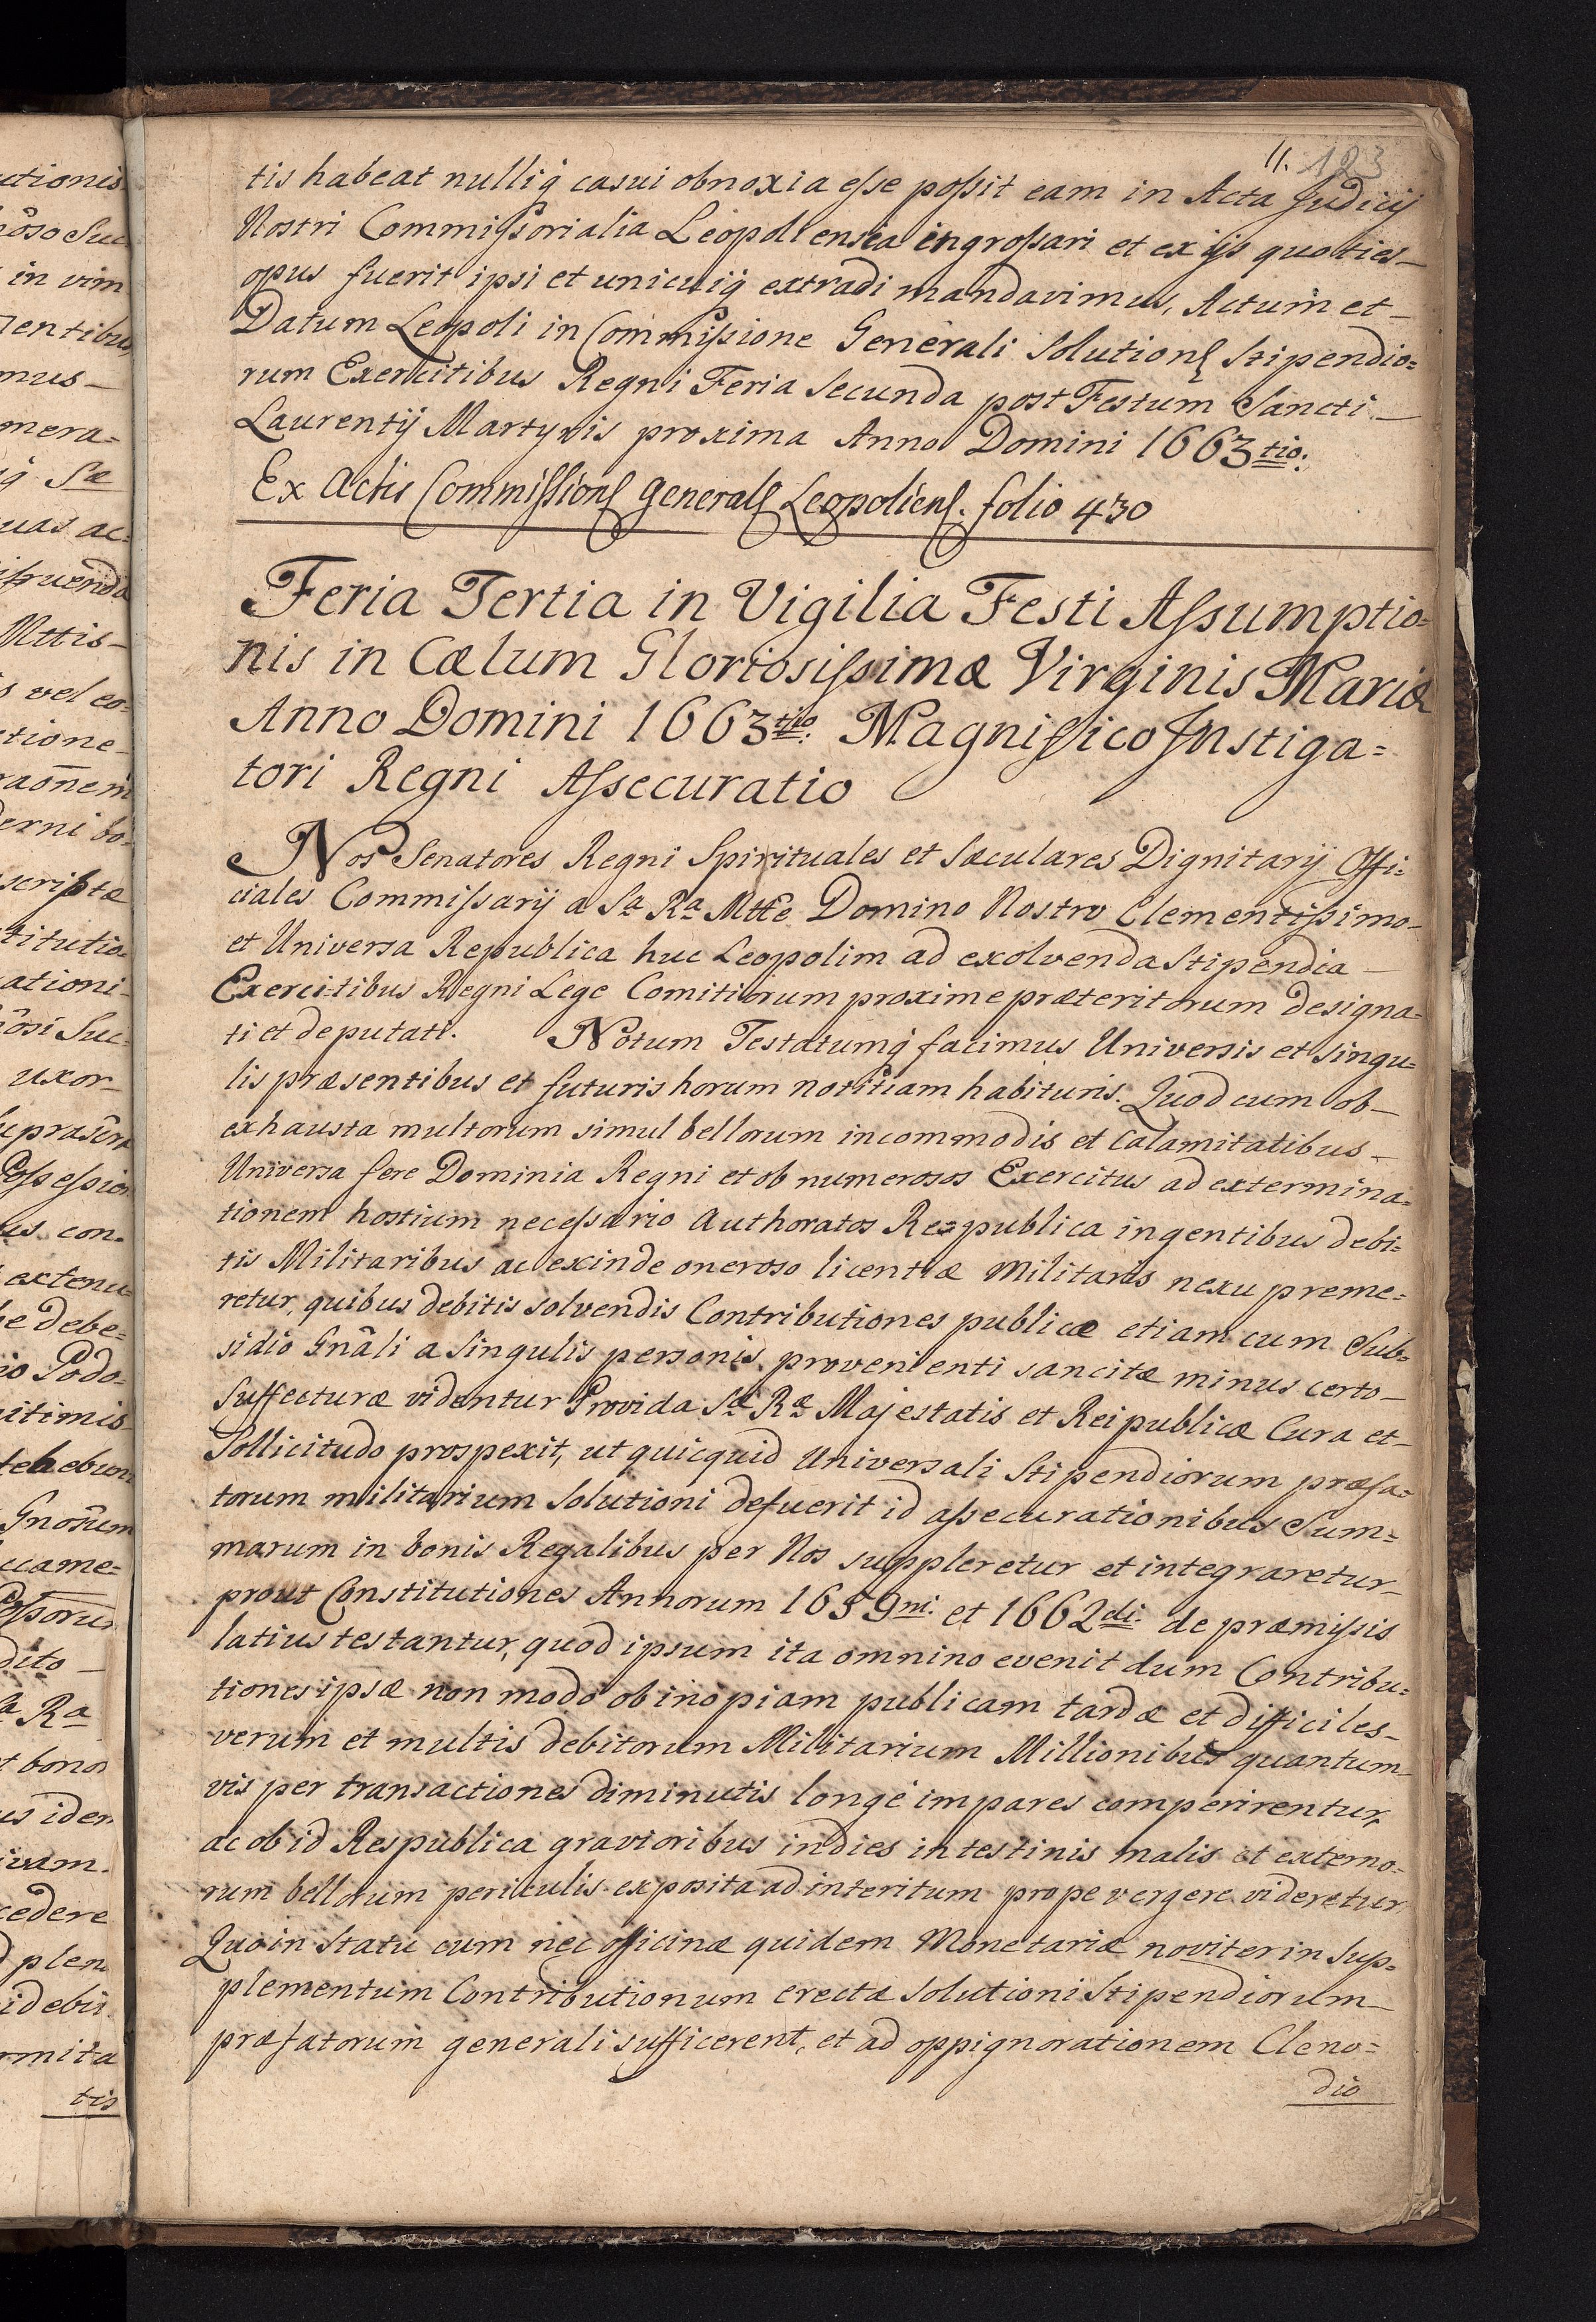 11. 123
tis habeat nulliq casui obnoxia eſse poſsit eam in Acta Judicij
Nostri Commiſsorialia Leopoliensia ingroſsari et ex ijs quoties_
opus fuerit ipsi et unicuiq extradi mandavimus, Actum et_
Datum Leopoli in Commiſsione Generali Solutionę Stipendio=
rum Exercitibus Regni Feria Secunda post Festum Sancti_
Laurentij Martyris proxima Anno Domini 1663tio:
Ex Actis Commiſsionę Generalę Leopolienę. folio 430
Feria Tertia in Vigilia Festi Aſsumptio=
nis in Cælum Gloriosiſsimæ Virginis Mariæ
Anno Domini 1663tio: Magnifico Instiga=
tori Regni Aſsecuratio
Nos Senatores Regni Spirituales et Sæculares Dignitarij Offi=
ciales Commiſsarij a Sa Ra Mtte Domino Nostro Clementiſsimo_
et Universa Republica huc Leopolim ad exolvenda Stipendia_
Exercitibus Regni Lege Comitiorum proxime præteritorum designa=
ti et deputati. Notum Testatumq facimus Universis et singu=
lis præsentibus et futuris horum notitiam habituris. Quod cum ob_
exhausta multorum simul bellorum incommodis et calamitatibus_
Universa fere Dominia Regni et ob numerosos Exercitus ad extermina=
tionem hostium neceſsario authoratos Respublica ingentibus debi=
tis Militaribus ac exinde oneroso licentiæ militaris nexu preme=
retur, quibus debitis solvendis Contributiones publicæ etiam cum Sub=
sidio Gnãli a singulis personis provenienti sancitæ minus certo_
Suffecturæ videntur Provida Sæ Ræ Majestatis et Reipublicæ Cura et_
Sollicitudo prospexit, ut quicquid Universali Stipendiorum præfa=
torum militarium Solutioni defuerit id aſsecurationibus Sum=
marum in bonis Regalibus per Nos suppleretur et integraretur_
prout Constitutiones Annorum 1659ni. et 1662di. de præmiſsis
latius testantur, quod ipsum ita omnino evenit dum Contribu=
tiones ipsæ non modo ob inopiam publicam tardæ et difficiles_
verum et multis debitorum Militarium Millionibus quantum_
vis per transactiones diminutis longe impares comperirentur,
ac ob id Respublica gravioribus indies intestinis malis et externo_
rum bellorum periculis exposita ad interitum prope vergere videretur.
Quo in statu cum nec officinæ quidem Monetariæ noviter in Sup=
plementum Contributionum erectæ Solutioni Stipendiorum_
præfatorum generali sufficerent, et ad oppignorationem Cleno=
dio